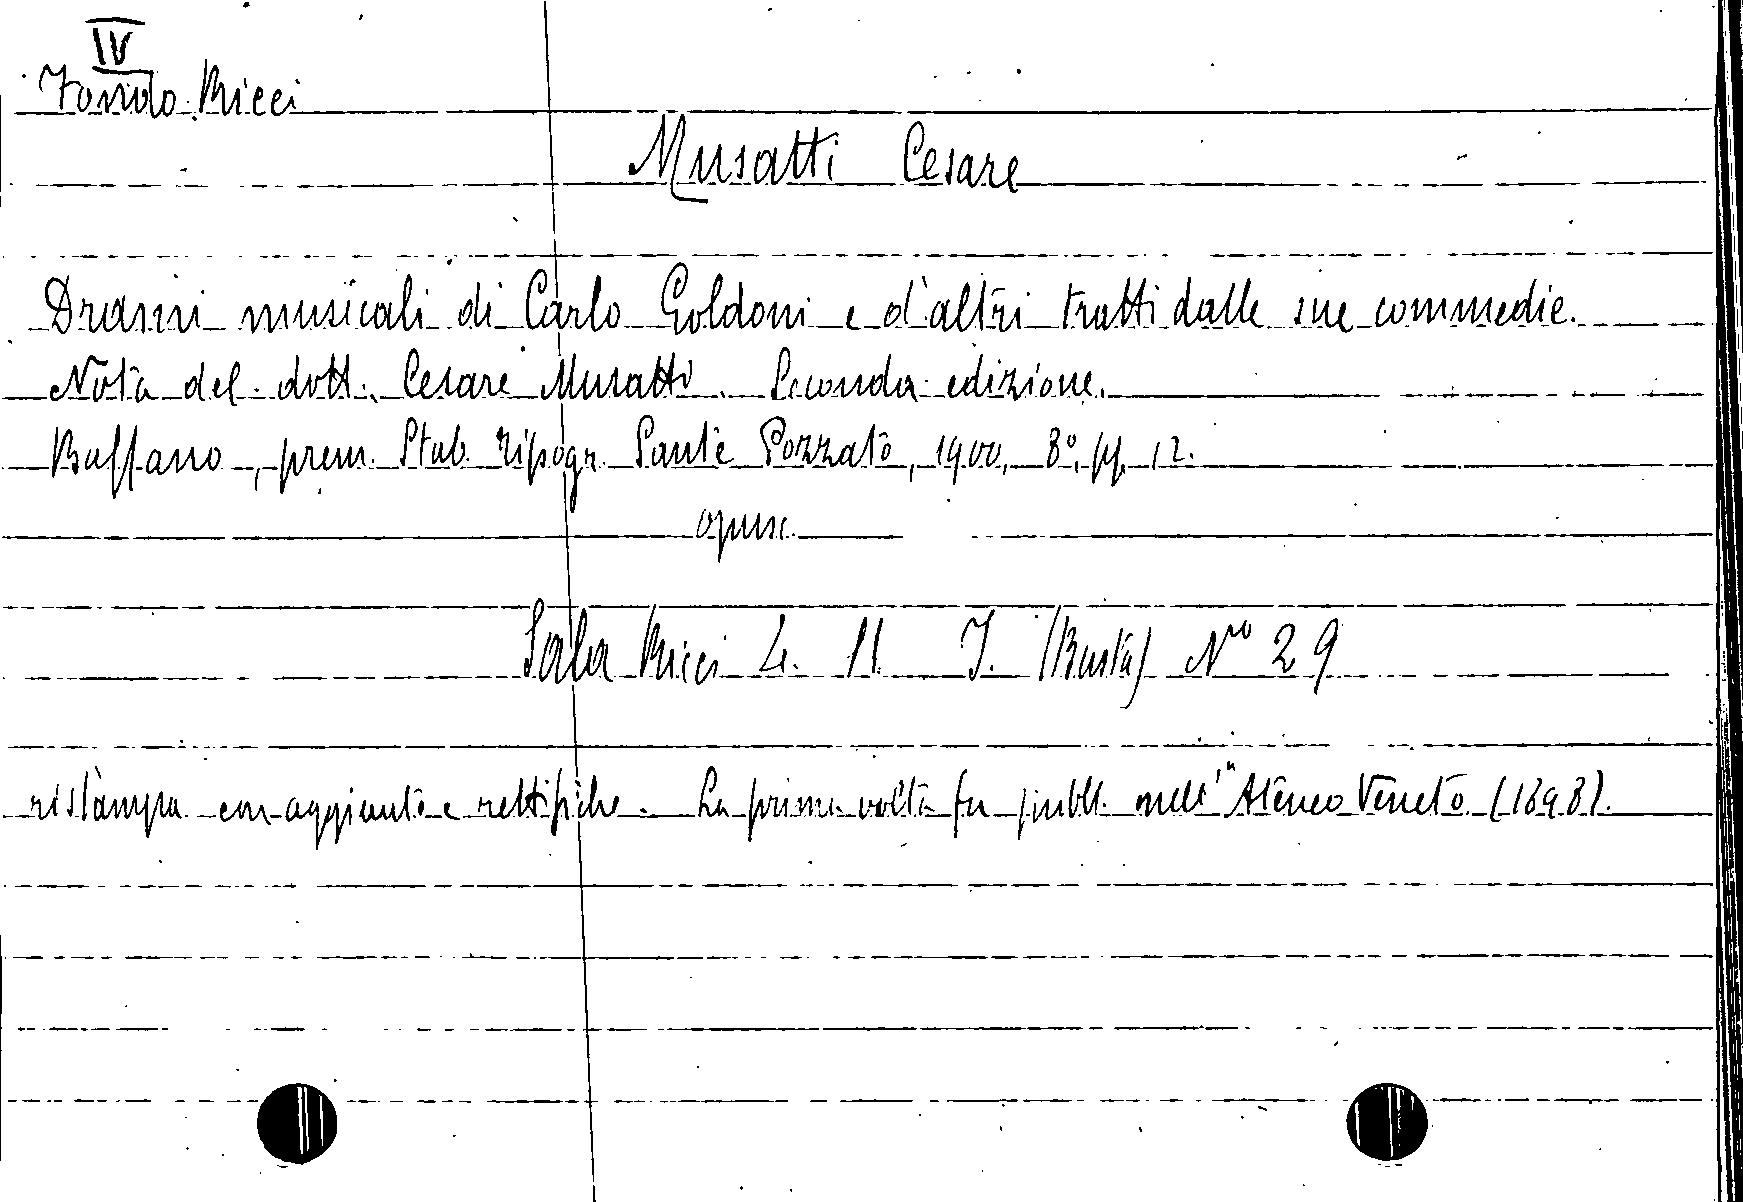 IV
Fondo Ricci
Musatti Cesare
Drammi musicali di Carlo Goldoni e d'altri tratti dalle sue commedie.
Nota del dott. Cesare Musatti. Seconda edizione.
Bassano, prem. Stab. Tipogr. Sante Pozzato, 1900, 8º, pp. 12.
opusc.
Sala Ricci 4. 11 I. (Busta) Nro 29
ristampa con aggiunte e rettifiche. La prima volta fu pubbl. nell' "Ateneo Veneto (1898).